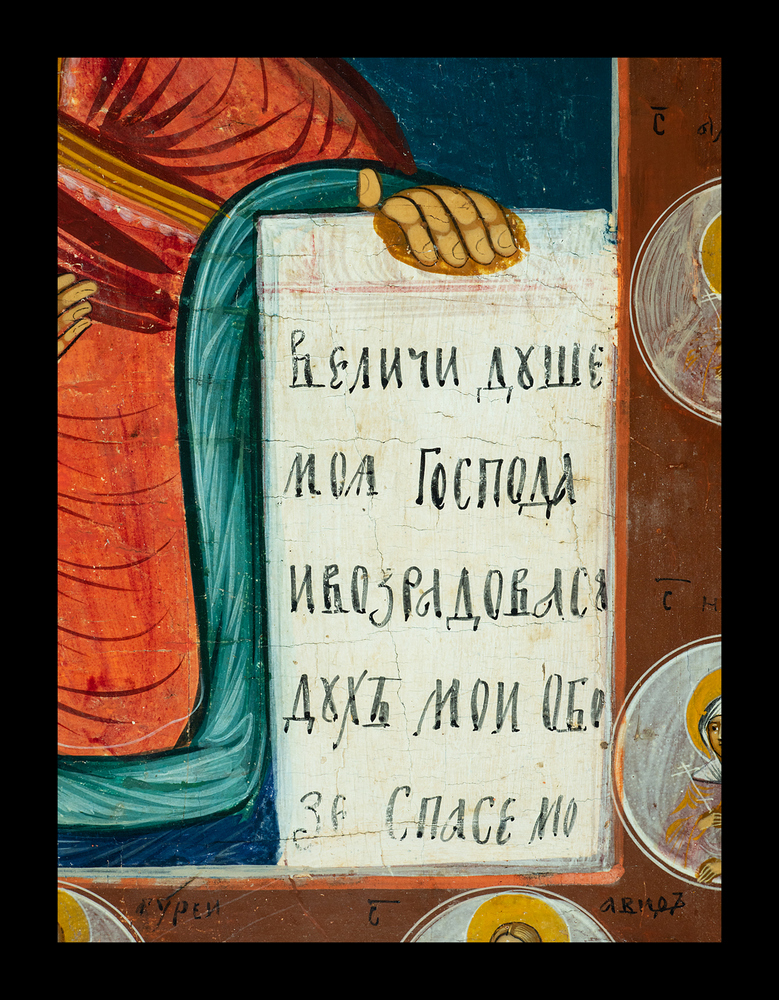 величи дꙋше
моа Господа
ивозрадовасѧ
дꙋхъ мои ѡбо
зе Спасе мо
с҃
с҃ н
гуреи
с҃
авивъ